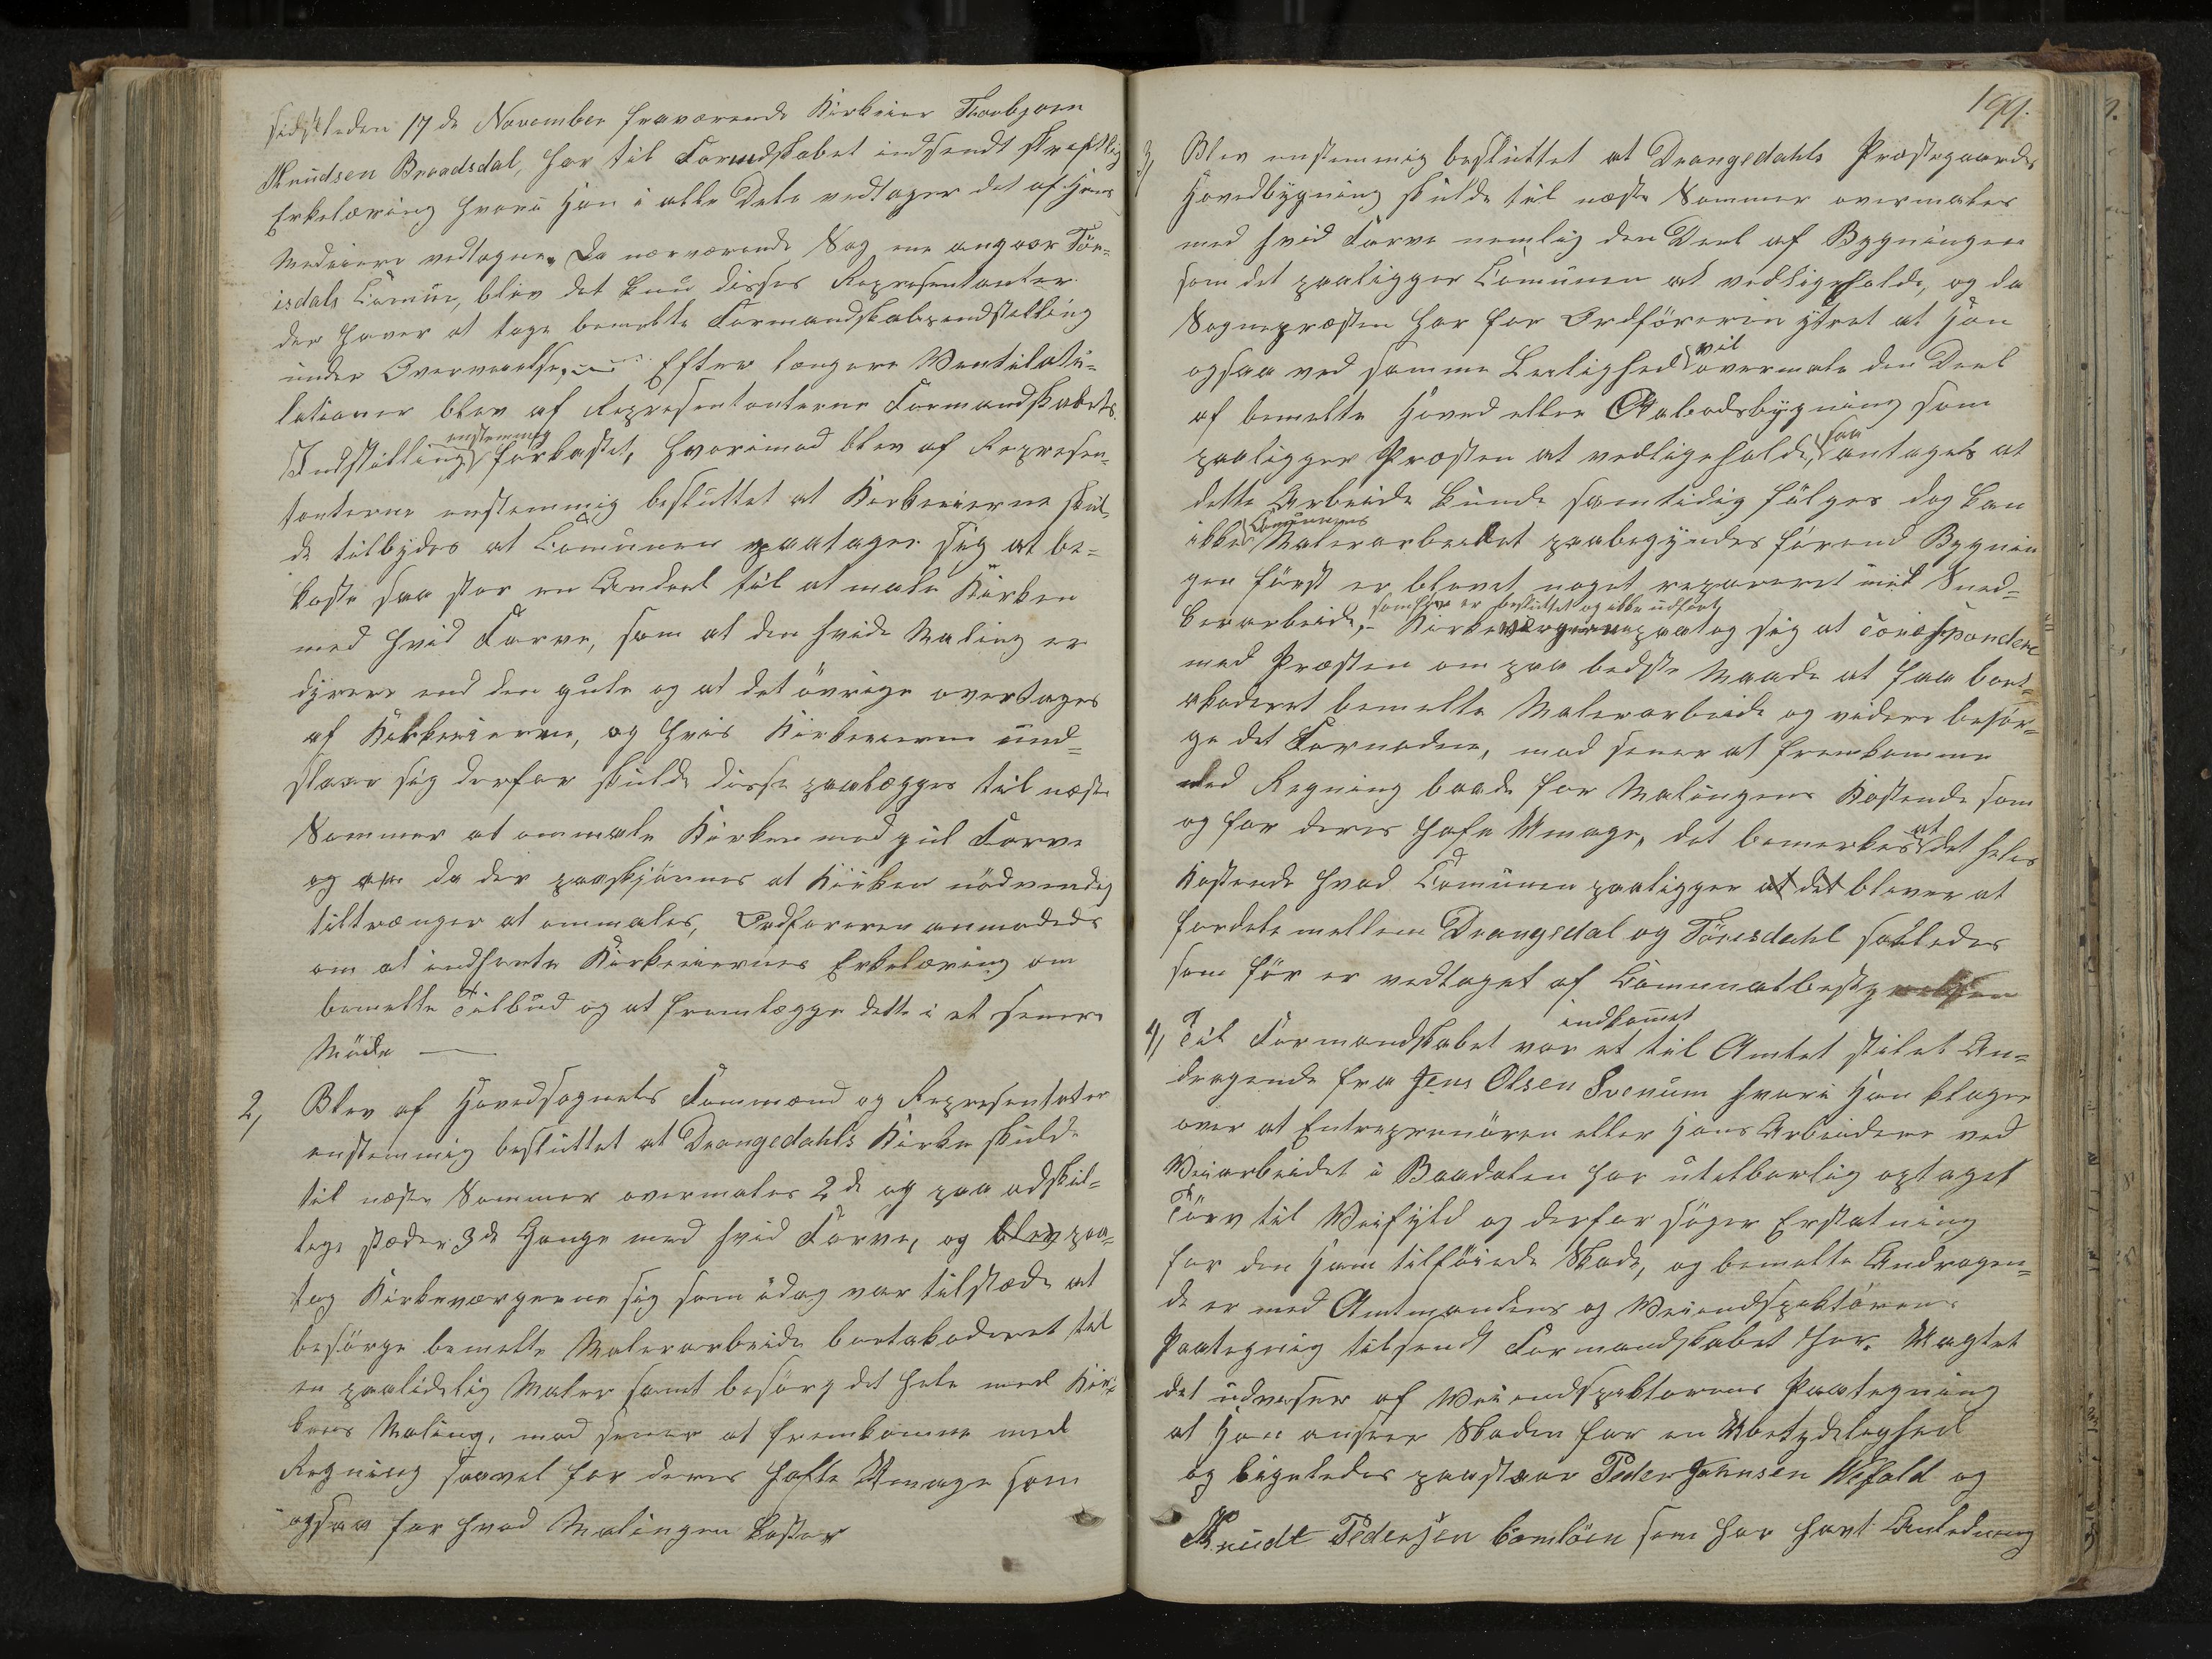 sidstleden 17de November fraværende Kirkeier Thorbjørn
Knudsen Braadsdal, har til Formandskabet indsendt skriftlig
Erkelæring hvori Han i alle Dele vedtager det af Hans
Medeiere vedtagne. Da nærværende Sag ene angaar Tör-
isdals Comün, blev det kun disses Representanter
der haver at tage bemelte Formandskabsindstilling
under Overveielse, Efter længere Ventilatü-
lationer blev af Representanterne Formandskabets
enstemmig
Indstilling forkastet, hvorimod blev af Represen-
tanterne enstemmig besluttet at Kirkeeierne skul-
de tilbydes at Comunen paatager sig at be-
koste saa stor en Andeel til at male Kirken
med hvid Farve, som at den hvide Maling er
dyrere end den gule og at det övrige overtages
af Kirkeeierne, og hvis Kirkeeierne und-
slaar sig derfor skulde disse paalægges til næste
Sommer at ommale Kirken med gul Farve
og da der paaskjönnes at Kirken nödvendig
tiltrænger at ommales, Ordføreren anmodede
om at indhente Kirkeeiernes Erkelæring om
bemelte Tilbud og at fremlægge dette i et senere
Möde
2, Blev af Hovedsognets Formænd og Representater
enstemmig besluttet at Drangedahls Kirke skulde
til næste Sommer overmales 2de og paa adskil-
lige stæder 3de Gange med hvid Farve, og blev paa-
tog Kirkeværgerne sig som idag var tilstæde at
besörge bemelte Malerarbeide bortakoderet til
en paalidelig Maler samt besörg det hele med Kir-
kens Maling, mod senere at fremkomme med
Regning saavel for deres hafte Umage som
ogsaa for hvad Malingen koster
199.
3, Blev enstemmig besluttet at Drangedahls Præstegaards
Hovedbygning skulde til næste Sommer overmales
med hvid Farve nemlig den Deel af Bygningen
som det paaligger Comunen at vedligeholde, og da
Sognepræsten har for Ordföreren ytret at Han
vil
ogsaa ved samme Leilighed overmale den Deel
af bemelte Hoved eller bygning som
saa
paaligger Præsten at vedligeholde, antages at
dette Arbeide kunde samtidig fölges dog kan
Comunens
ikke Malerarbeidet paabegyndes förend Bygnin
gen först er blevet noget repareret med Sned-
som för er besluttet og ikke udfört
kerarbeide, Kirkeværgerne paatog sig at Corespondere
med Præsten om paa bedste Maade at faa bort-
akoderet bemelte Malerarbeide og videre besör-
ge det Fornødne, mod senere at fremkomme
med Regning baade for Malingens Kostende som
at
og for deres hafte Umage, det bemerkes det heles
Kostende hvad Comunen paaligger at det bliver at
fordele mellem Drangedal og Törisdahl saaledes
som för er vedtaget af Comunalbestyrelsen
indkommet
4, Til Formandskabet var et til Amtet stilet An-
dragende fra Jens Olsen Svenum hvori Han klager
over at Entreprenören eller Hans Arbeidere ved
Veiarbeidet i Baadalen har utilbørlig optaget
Törv til Veifyld og derfor söger Erstatning
for den Ham tilföiede Skade, og bemelte Andragen-
de er med Amtmandens og Veiendspektörens
Paategning tilsendt Formandskabet her. Uagtet
det udviser af Veiendspektorens Paategning
at Han anseer Skaden for en Ubetydelighed
og ligeledes paastaar Peder Johnsen Wefald og
Knudt Pedersen som har havt Anledning